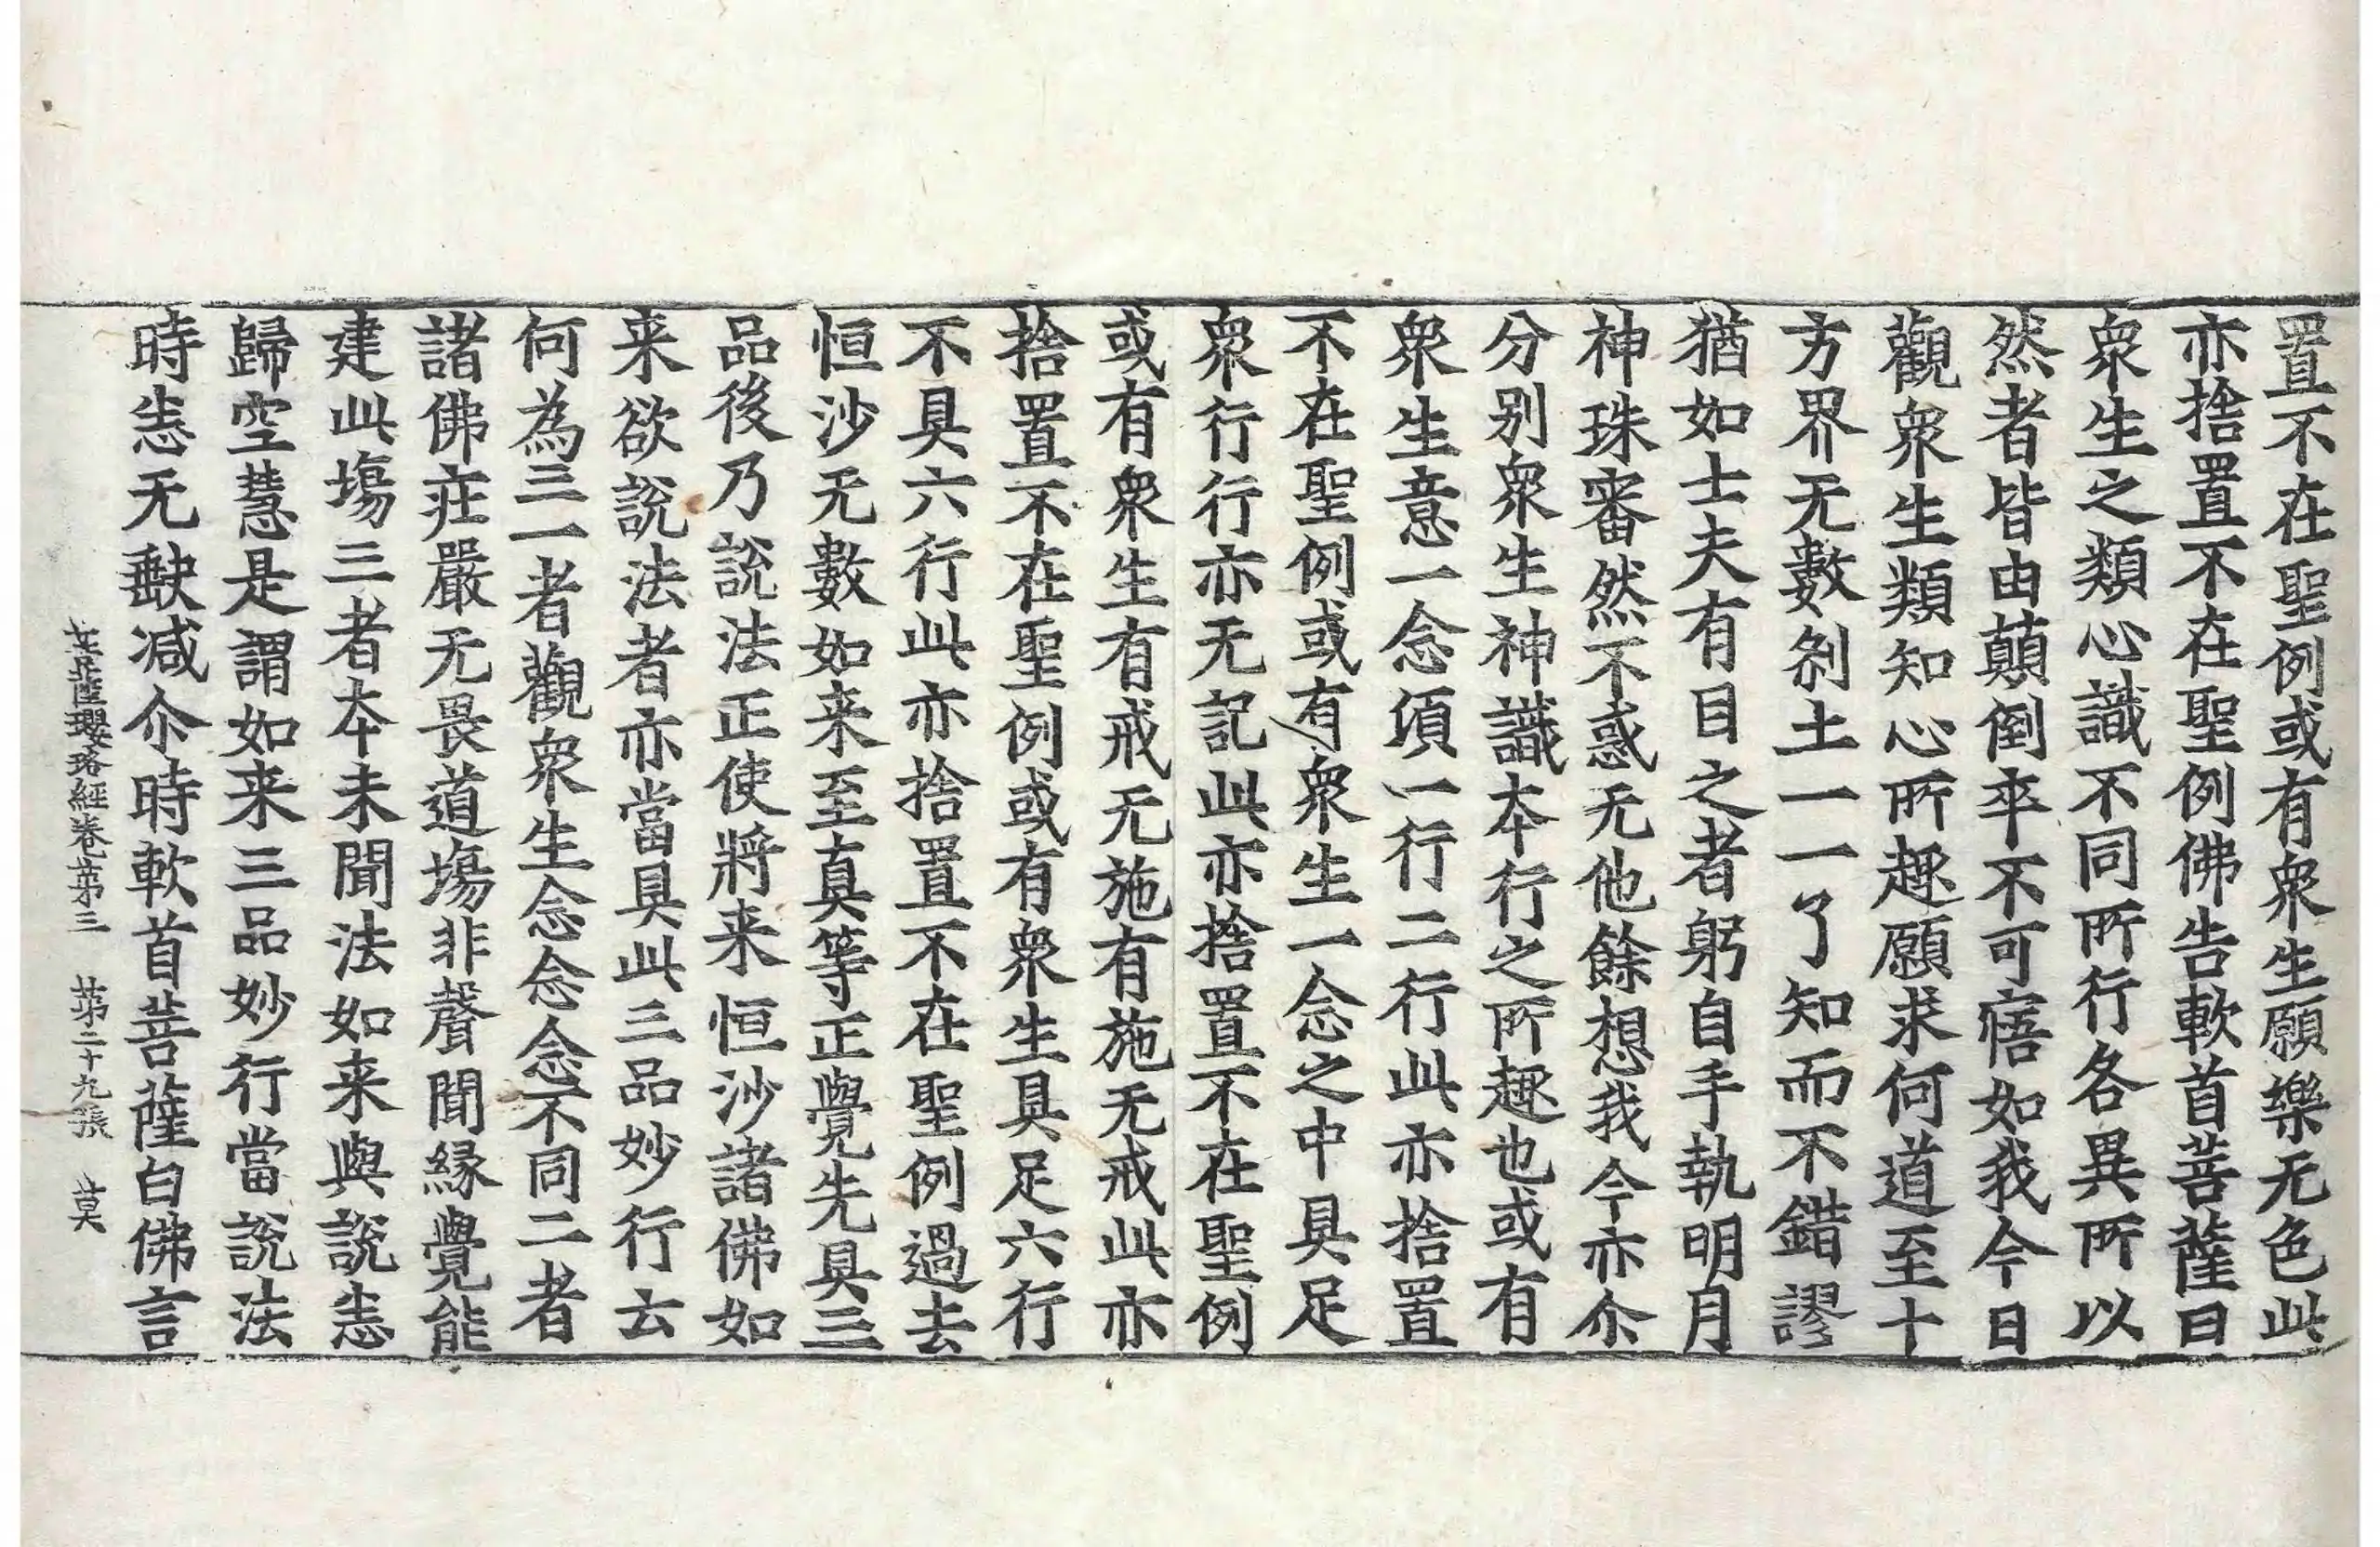 置不在聖例或有衆生願樂无色此
亦捨置不在聖例佛告軟首菩薩曰
衆生之類心識不同所行各異所以
然者皆由顛倒卒不可寤如我今日
觀衆生類知心所趣願求何道至十
方界无數刹土一一了知而不錯謬
猶如士夫有目之者躬自手執明月
神珠審然不惑无他餘想我今亦尒
分别衆生神識本行之所趣也或有
衆生意一念頃一行二行此亦捨置
不在聖例或有衆生一念之中具足
衆行行亦无記此亦捨置不在聖例
或有衆生有戒无施有施无戒此亦
捨置不在聖例或有衆生具足六行
不具六行此亦捨置不在聖例過去
恒沙无數如来至真等正覺先具三
品後乃說法正使將来恒沙諸佛如
来欲說法者亦當具此三品妙行云
何為三一者觀衆生念念念不同二者
諸佛莊嚴无畏道塲非聲聞緣覺能
建此塲三者本未聞法如来與說恚
歸空慧是謂如来三品妙行當說法
時恚无缺减尒時軟首菩薩白佛言
瓔珞經卷第三 第二十九張 莫